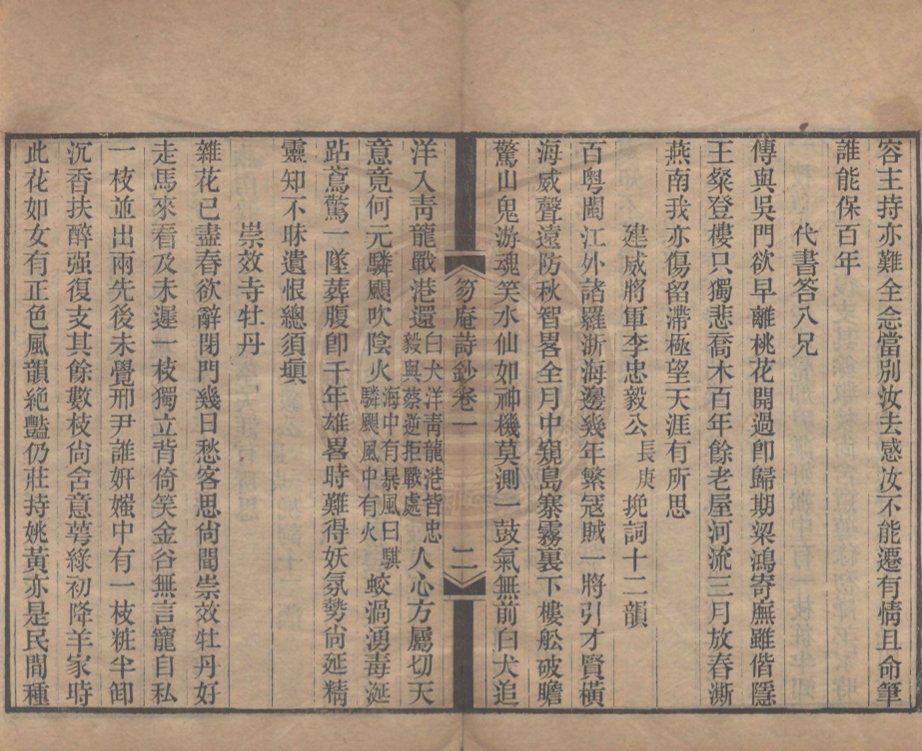 容主持亦難全念當別汝去感汝不能遷有情且命筆
誰能保百年
代書答八兄
傳與吳門欲早離桃花開過卽歸期梁鴻寄廡雖偕隱
王粲登樓只獨悲喬木百年餘老屋河流三月放春澌
燕南我亦傷留滯極望天涯有所思
建威將軍李忠毅公長庚挽詞十二韻
百粤閩江外諸羅浙海邊幾年繁寇賊一將引才賢橫
海威聲遠防秋智畧全月中窺島寨霧裏下樓舩破膽
驚山鬼游魂笑水仙如神機莫測一鼓氣無前白犬追
笏庵詩鈔卷一
二
洋入靑龍戰港還白犬洋靑龍港皆忠毅與蔡逆拒戰處人心方屬切天
意竟何元驎颶吹陰火海中有暴風曰騏驎颶風中有火蛟渦湧毒涎
跕鳶驚一墜葬腹卽千年雄畧時難得妖氛勢尙延精
靈知不昧遺恨總須塡
崇效寺牡丹
雜花已盡春欲辭閉門幾日愁客思尙聞崇效牡丹好
走馬來看及未遲一枝獨立背倚笑金谷無言寵自私
一枝並出兩先後未覺邢尹誰妍媸中有一枝粧半卸
沉香扶醉强復支其餘數枝尙含意萼綠初降羊家時
此花如女有正色風韻絕豔仍莊持姚黃亦是民間種